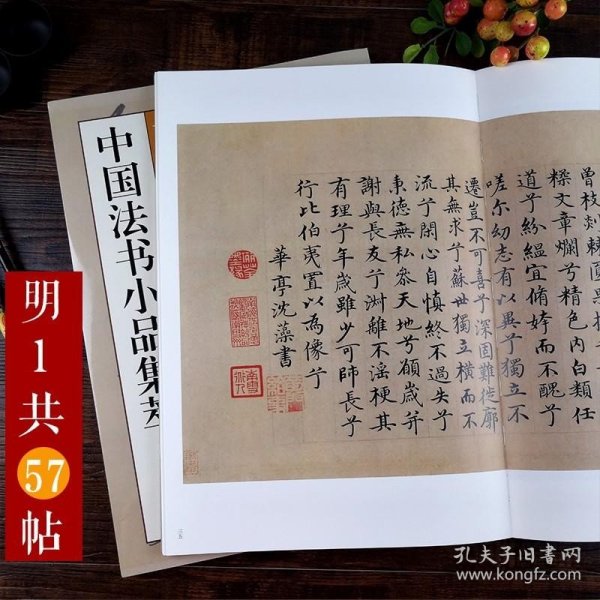 中国法书小品集萃
明1共57帖
曾枝剡棘圓果
糅文章爛兮精色内白類任
道兮紛緼宜脩姱而不醜兮
嗟尔幼志有以異兮獨立不
遷豈不可喜兮深固難徙廓
其無求兮蘇世獨立橫而不
流兮閑心自慎終不過失兮
秉德無私叅天地兮願歲并
謝與長友兮淑離不滛梗其
有理兮年歲雖少可師長兮
行比伯夷置以為像兮
華亭沈藻書
孔夫子旧书网
www.kongfz.com